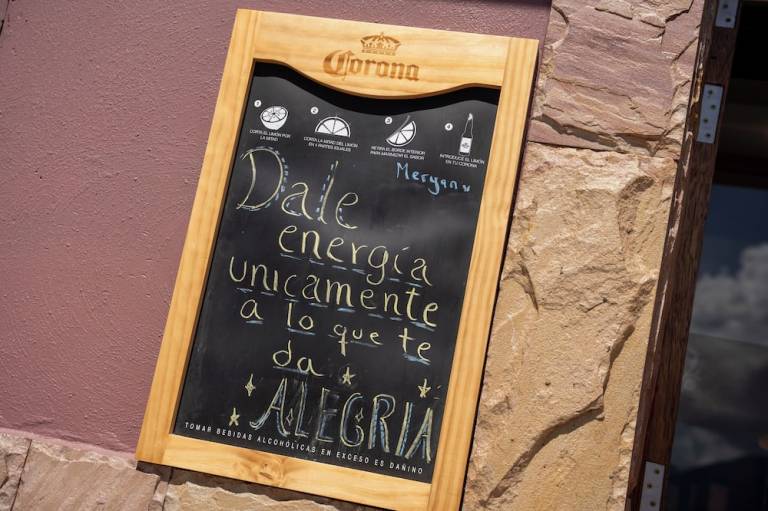 Corona
1 2 3 4
CORTA EL LIMÓN POR
LA MITAD
CORTA LA MITAD DEL LIMÓN
EN 4 PARTES IGUALES
RETIRA EL BORDE INTERIOR
PARA MAXIMIZAR EL SABOR
INTRODUCE EL LIMÓN
EN TU CORONA
Dale
energía
unicamente
a lo que te
da
ALEGRIA
TOMAR BEBIDAS ALCOHÓLICAS EN EXCESO ES DAÑINO